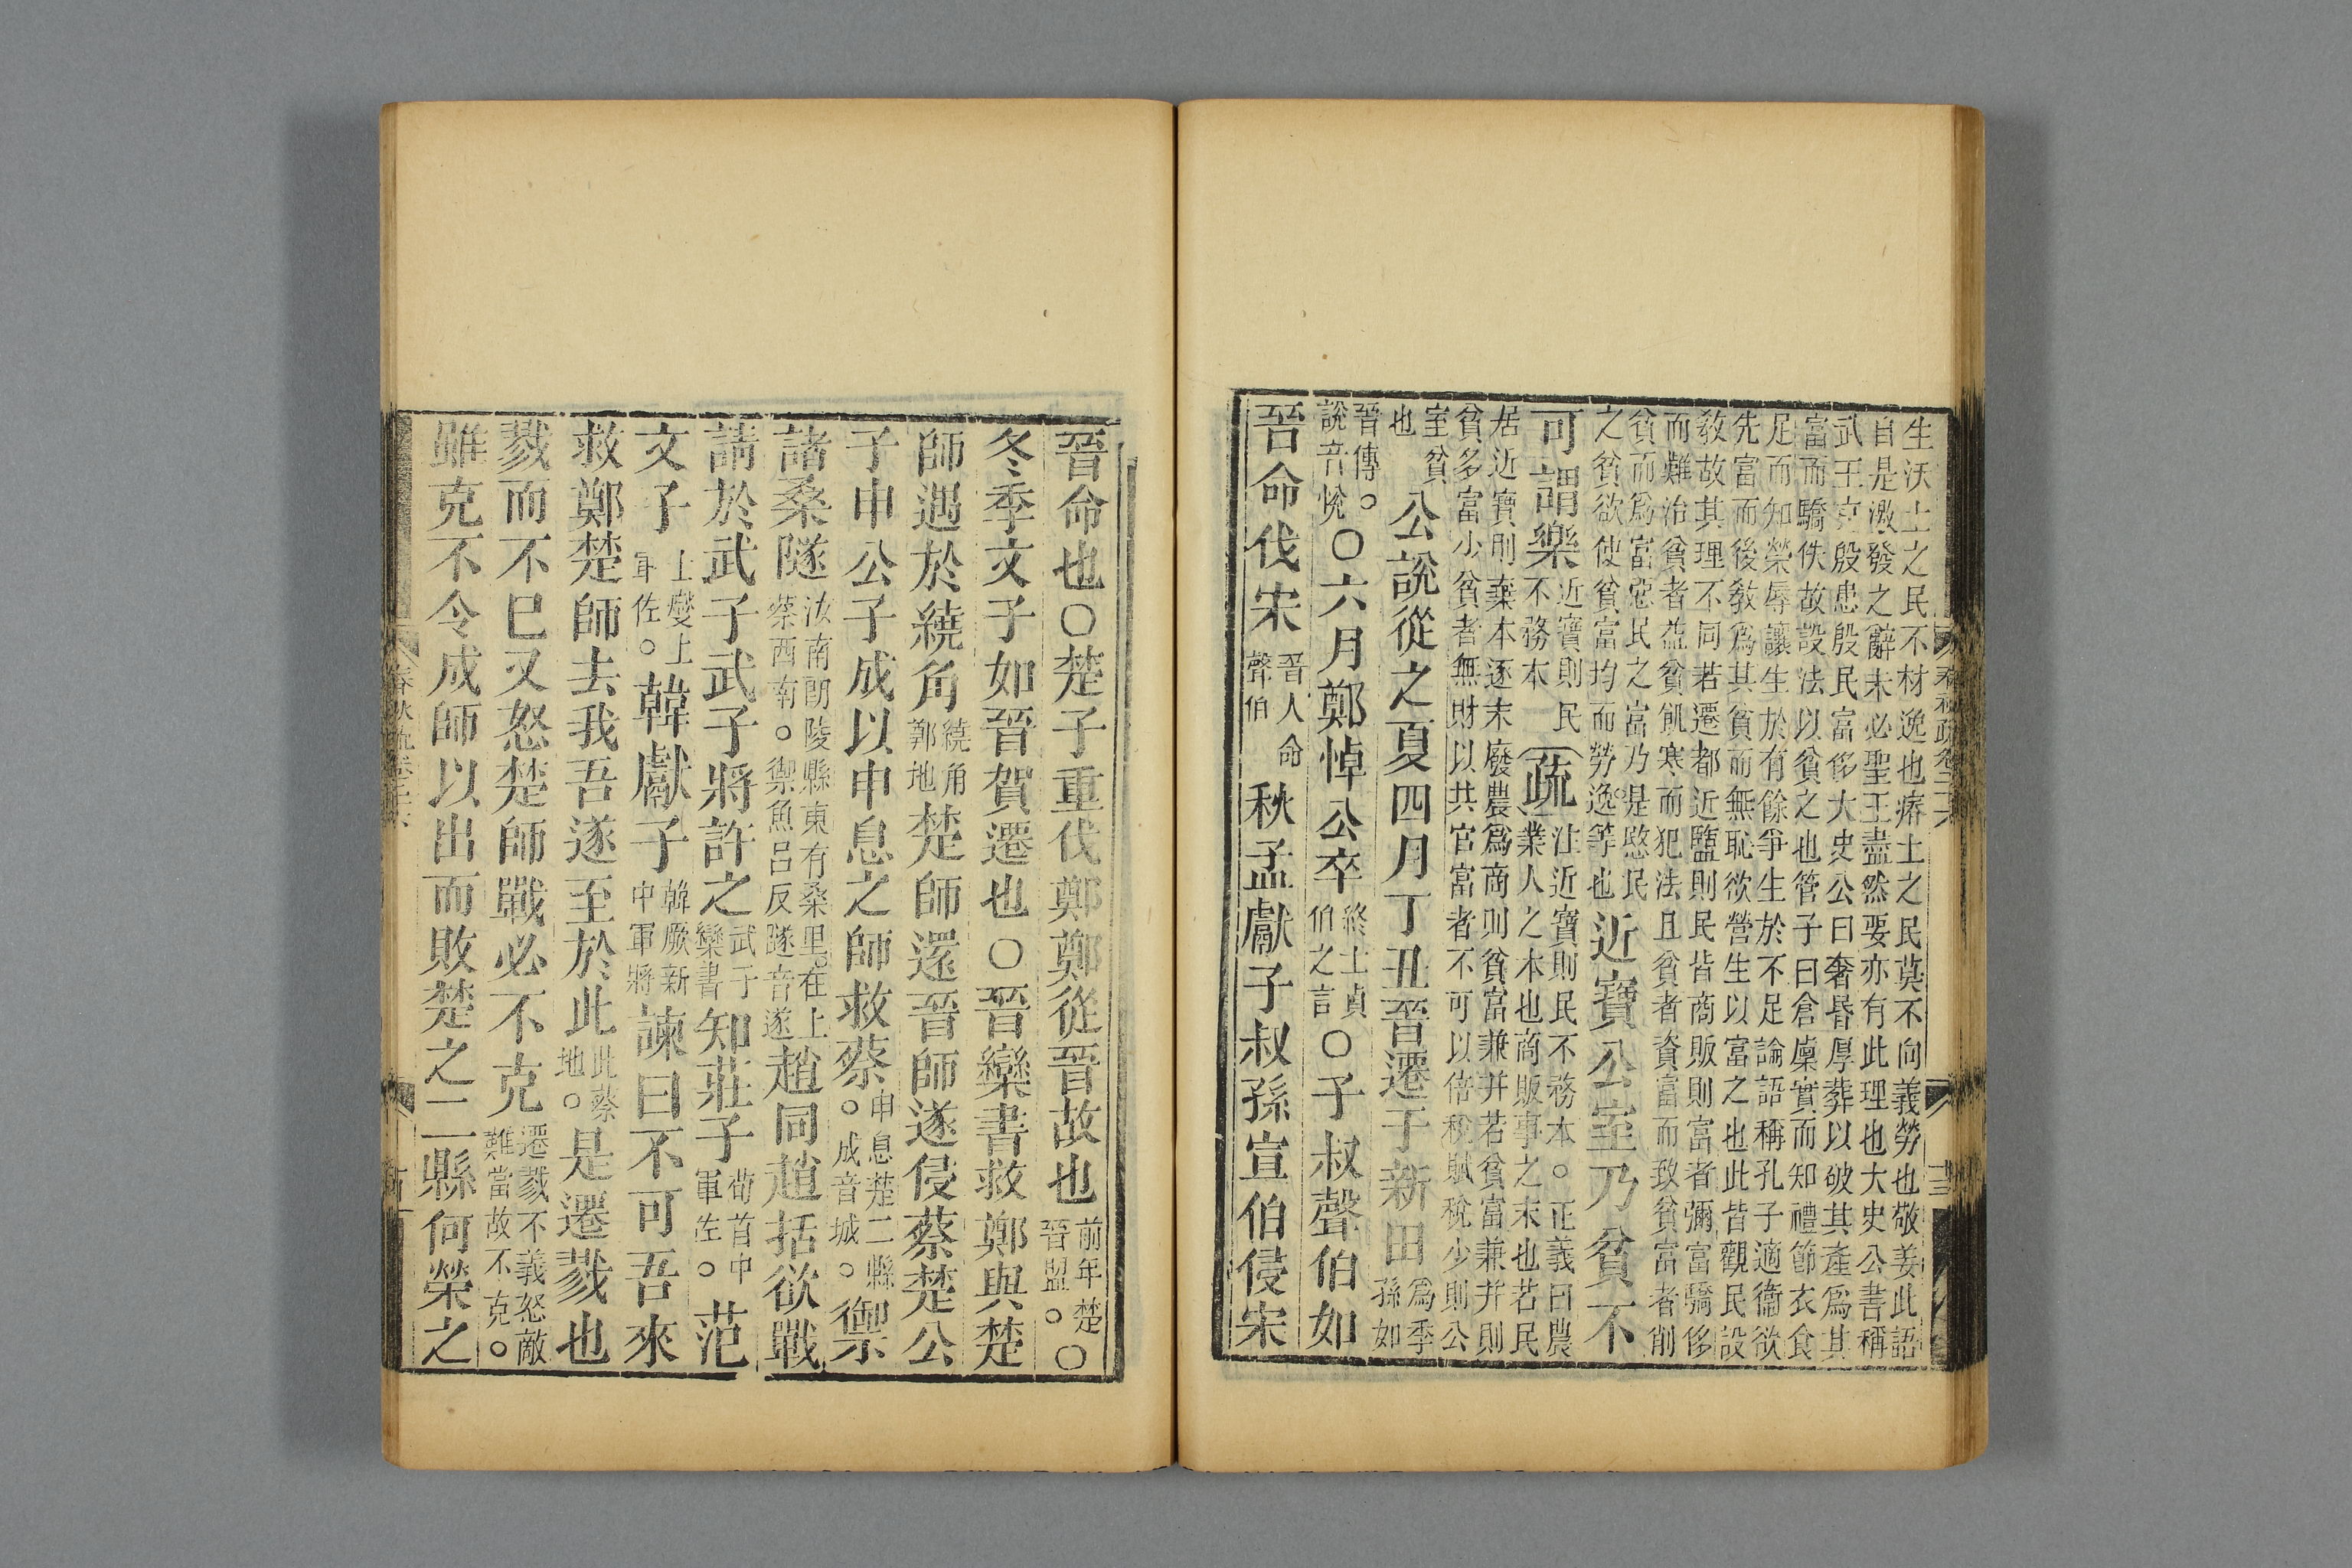 生沃土之民不材逸也瘠土之民莫不向義勞也敬姜此語
自是激發之辭未必聖王盡然要亦有此理也大史公書稱
武王克殷患殷民富侈大史公曰奢昬厚葬以破其產爲其
富而驕佚故設法以貧之也管子曰倉廩實而知禮節衣食
足而知榮辱讓生於有餘爭生於不足論語稱孔子適衞欲
先富而後敎爲其貧而無恥欲營生以富之也此皆觀民設
敎故其理不同若遷都近鹽則民皆商販則富者彌富驕侈
而難治貧者益貧飢寒而犯法且貧者資富而致貧富者削
貧而爲富惡民之富乃是愍民
之貧欲使貧富均而勞逸等也
近寶公室乃貧不
可謂樂
近寶則民
不務本
疏
注近寶則民不務本。正義曰農
業人之本也商販事之末也若民
居近寶則棄本逐末廢農爲商則貧富兼并若貧富兼并則
貧多富小貧者無財以共官富者不可以倍稅賦稅少則公
室貧
也
公說從之夏四月丁丑晉遷于新田
爲季
孫如
晉傳。
說音悅
○六月鄭悼公卒
終士貞
伯之言
○子叔聲伯如
晉命伐宋
晉人命
聲伯
秋孟獻子叔孫宣伯侵宋
晉命也○楚子重伐鄭鄭從晉故也
前年楚
晉盟。
○
冬季文子如晉賀遷也○晉欒書救鄭與楚
師遇於繞角
繞角
鄭地
楚師還晉師遂侵蔡楚公
子申公子成以申息之師救蔡。
申息楚二縣
成音城。
禦
諸桑隧
汝南朗陵縣東有桑里在上
蔡西南。禦魚呂反隧音遂
趙同趙括欲戰
請於武子武子將許之
武子
欒書
知莊子
荀首中
軍佐。
范
文子
士燮上
軍佐。
韓獻子
韓厥新
中軍將
諫曰不可吾來
救鄭楚師去我吾遂至於此
此蔡
地。
是遷戮也
戮而不已又怒楚師戰必不克
遷戮不義怒敵
難當故不克。
雖克不令成師以出而敗楚之二縣何榮之